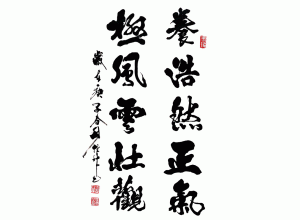 養浩然正氣
極風雲壯觀
歲在庚子